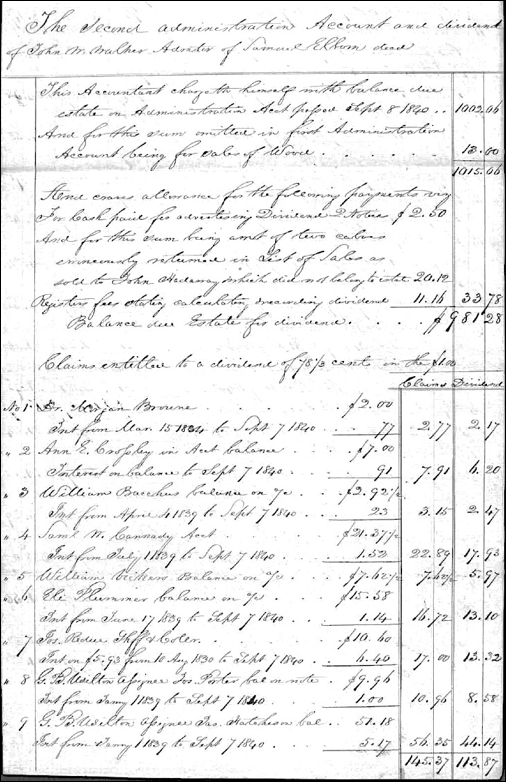 The Second administration Account and dividend
of John W. Walker Admtor of Samuel Elborn decd
This Accountant chargeth himself with balance due
estate on Administration Acct passed Sept 8 1840 .. 1002.06
And for this sum omitted in first Administration
Account being for sales of Wood . . . 13.00
1015.06
And craves allowance for the following payments viz
For Cash paid for advertising Dividend 2 Notices $2.50
And for this sum being amt of two calves
erroneously returned in List of Sales as
sold to John which did not belong to estate 20.12
Registers fees stating calculating recording dividend 11.16 33.78
Balance due Estate for dividend . . . . $981.28
Claims entitled to a dividend of 78 1/3 cents in the $1.00
Claims Dividend
No 1 Dr. Morgan Browne . . . . $2.00
Int from Mar. 15 1834 to Sept 7 1840 . . 77 2.77 2.17
" 2 Ann E. Crossley on Acct balance $7.00
Interest on balance to Sept 7 1840 . . . 91 7.91 6.20
" 3 William Bacchus balance on %c . . $2.92 1/2
Int from April 4 1839 to Sept 7 1840 . . . 23 3.15 2.47
" 4 Saml W. Cannady Acct . . . $21.37 1/2
Int from July 1 1839 to Sept 7 1840 . . . 1.52 22.89 17.93
" 5 William Balance on %c . . $7.62 1/2 7.62 1/2 5.97
" 6 Eli Plummer balance on %c $15.58
Int from June 17 1839 to Sept 7 1840 . . . 1.14 16.72 13.10
" 7 Jos. Redue Shff & Coler. . . . $10.60
Int on $5.93 from 10 Aug 1830 to Sept 7 1840 . . 6.40 17.00 13.32
" 8 G. B. Welton assignee Jos. Porter bal on note . $9.96
Int from Jany 1 1839 to Sept 7 1840 . . 1.00 10.96 8.58
" 9 G. B. Welton assignee Jas. Hutcheson bal . . 51.18
Int from Jany 1 1839 to Sept 7 1840 . . . 5.17 56.35 44.14
145.37 113.87